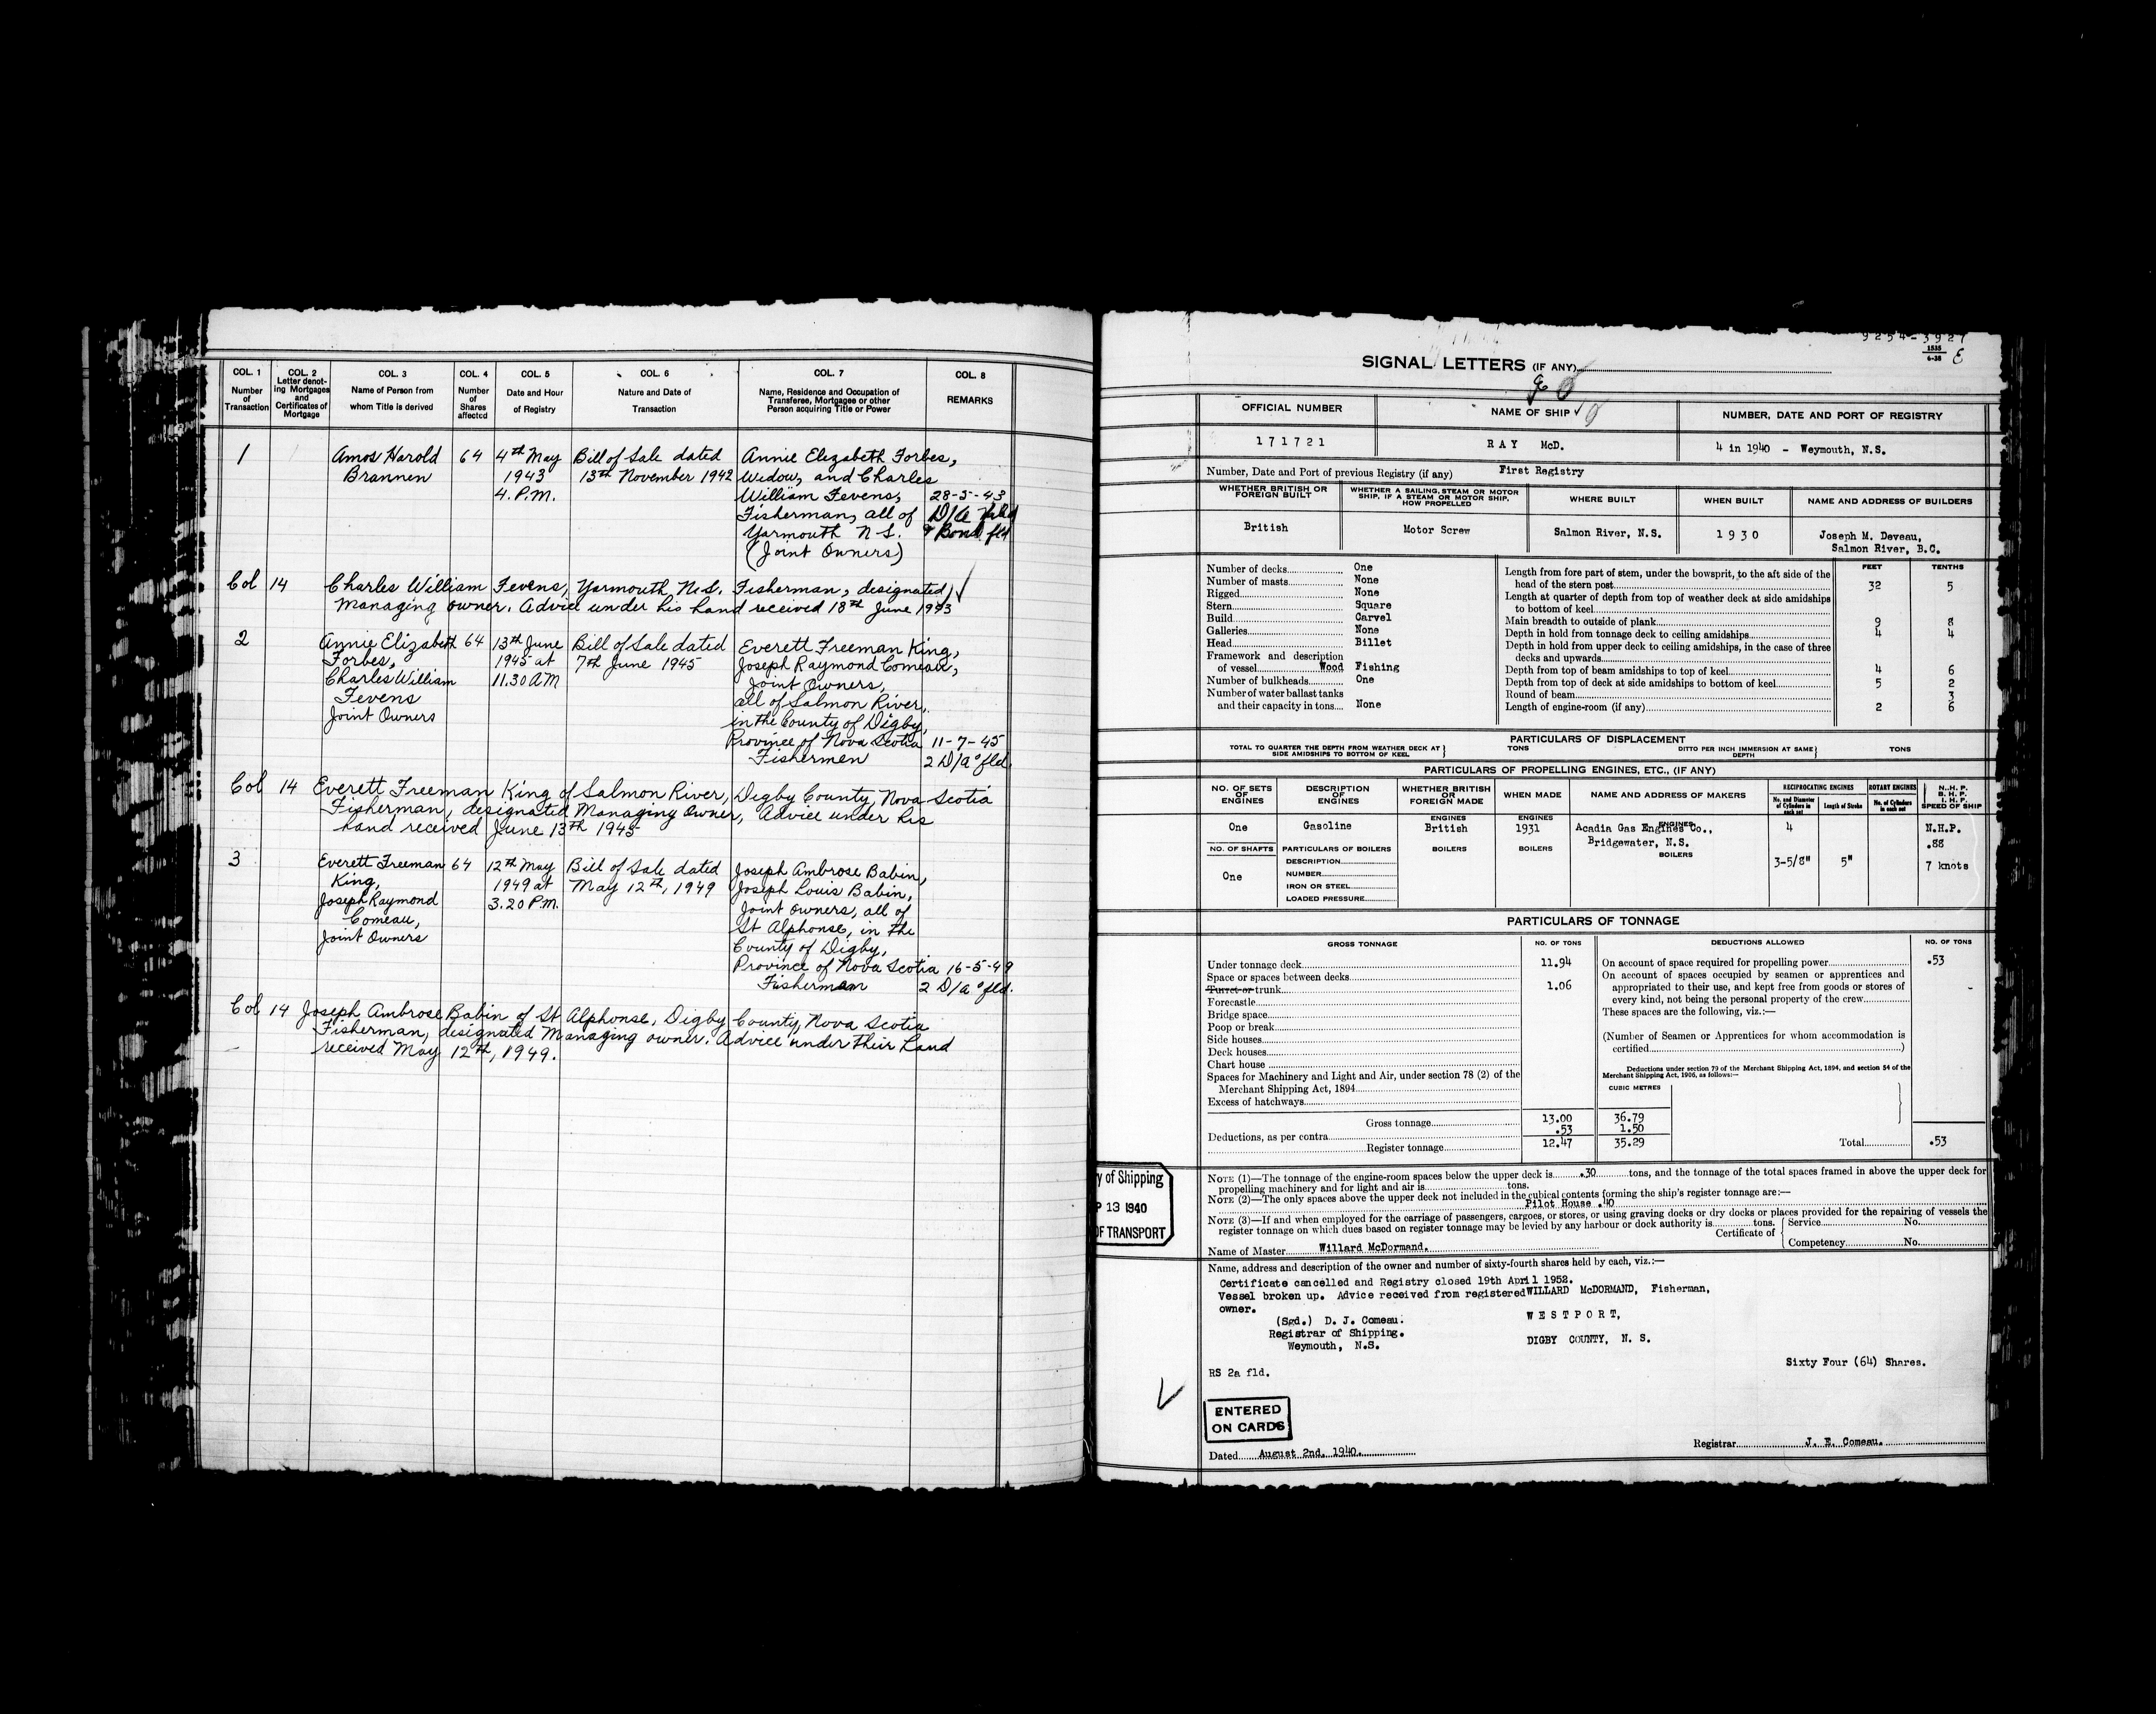 COL. 1 COL. 2 COL. 3 COL. 4 COL. 5 COL. 6 COL. 7 COL. 8
Number of Transaction
Letter denoting Mortgages and Certificates of Mortgage
Name of Person from whom Title is derived
Number of Shares affected
Date and Hour of Registry
Nature and Date of Transaction
Name, Residence and Occupation of Transferee, Mortgagee or other Person acquiring Title or Power
REMARKS
1 Amos Harold 64 4th May Bill of Sale dated Annie Elizabeth Forbes,
Brannen 1943 13th November 1942 Widow, and Charles
4. P.M. William Fevens, 28-5-43
Fisherman, all of D/a
Yarmouth N.S. & Bond fld
(Joint Owners)
Col 14 Charles William Fevens, Yarmouth, N.S. Fisherman, designated
Managing owner. Advice under his hand received 18th June 1943
2 Annie Elizabeth 64 13th June Bill of Sale dated Everett Freeman King,
Forbes, 1945 at 7th June 1945 Joseph Raymond Comeau,
Charles William 11.30 A.M Joint Owners,
Fevens all of Salmon River,
Joint Owners in the County of Digby,
Province of Nova Scotia 11-7-45
Fishermen 2 D/a's fld.
Col 14 Everett Freeman King of Salmon River, Digby County, Nova Scotia
Fisherman, designated Managing Owner, Advice under his
hand received June 13th 1945
3 Everett Freeman 64 12th May Bill of Sale dated Joseph Ambrose Babin,
King, 1949 at May 12th, 1949 Joseph Louis Babin,
Joseph Raymond 3.20 P.M. Joint Owners, all of
Comeau, St Alphonse, in the
Joint Owners County of Digby,
Province of Nova Scotia 16-5-49
Fisherman 2 D/a's fld.
Col 14 Joseph Ambrose Babin of St Alphonse, Digby County, Nova Scotia
Fisherman, designated Managing owner. Advice under their hand
received May 12th, 1949.
9254-3927
1535
6-38
E
SIGNAL LETTERS (IF ANY)
OFFICIAL NUMBER NAME OF SHIP NUMBER, DATE AND PORT OF REGISTRY
171721 RAY McD. 4 in 1940 - Weymouth, N.S.
Number, Date and Port of previous Registry (if any) First Registry
WHETHER BRITISH OR FOREIGN BUILT
WHETHER A SAILING, STEAM OR MOTOR SHIP, IF A STEAM OR MOTOR SHIP, HOW PROPELLED
WHERE BUILT WHEN BUILT NAME AND ADDRESS OF BUILDERS
British Motor Screw Salmon River, N.S. 1930 Joseph M. Deveau,
Salmon River, B.C.
FEET TENTHS
Number of decks One
Number of masts None
Rigged None
Stern Square
Build Carvel
Galleries None
Head Billet
Framework and description
of vessel Wood Fishing
Number of bulkheads One
Number of water ballast tanks
and their capacity in tons None
Length from fore part of stem, under the bowsprit, to the aft side of the
head of the stern post 32 5
Length at quarter of depth from top of weather deck at side amidships
to bottom of keel
Main breadth to outside of plank 9 8
Depth in hold from tonnage deck to ceiling amidships 4 4
Depth in hold from upper deck to ceiling amidships, in the case of three
decks and upwards
Depth from top of beam amidships to top of keel 4 6
Depth from top of deck at side amidships to bottom of keel 5 2
Round of beam 3
Length of engine-room (if any) 2 6
PARTICULARS OF DISPLACEMENT
TOTAL TO QUARTER THE DEPTH FROM WEATHER DECK AT SIDE AMIDSHIPS TO BOTTOM OF KEEL } TONS DITTO PER INCH IMMERSION AT SAME DEPTH } TONS
PARTICULARS OF PROPELLING ENGINES, ETC., (IF ANY)
NO. OF SETS OF ENGINES
DESCRIPTION OF ENGINES
WHETHER BRITISH OR FOREIGN MADE
WHEN MADE
NAME AND ADDRESS OF MAKERS
RECIPROCATING ENGINES ROTARY ENGINES
No. and Diameter of Cylinders in each set Length of Stroke No. of Cylinders in each set
N.H.P. B.H.P. I.H.P. SPEED OF SHIP
ENGINES ENGINES ENGINES
One Gasoline British 1931 Acadia Gas Engines Co., 4 N.H.P.
Bridgewater, N.S. .88
NO. OF SHAFTS PARTICULARS OF BOILERS BOILERS BOILERS BOILERS
3-5/8" 5" 7 knots
One
DESCRIPTION
NUMBER
IRON OR STEEL
LOADED PRESSURE
PARTICULARS OF TONNAGE
GROSS TONNAGE NO. OF TONS DEDUCTIONS ALLOWED NO. OF TONS
Under tonnage deck 11.94
Space or spaces between decks
Turret or trunk 1.06
Forecastle
Bridge space
Poop or break
Side houses
Deck houses
Chart house
Spaces for Machinery and Light and Air, under section 78 (2) of the
Merchant Shipping Act, 1894
Excess of hatchways
Gross tonnage 13.00 36.79
Deductions, as per contra .53 1.50
Register tonnage 12.47 35.29
On account of space required for propelling power .53
On account of spaces occupied by seamen or apprentices and
appropriated to their use, and kept free from goods or stores of
every kind, not being the personal property of the crew -
These spaces are the following, viz.:—
(Number of Seamen or Apprentices for whom accommodation is
certified )
Deductions under section 79 of the Merchant Shipping Act, 1894, and section 54 of the
Merchant Shipping Act, 1906, as follows:—
CUBIC METRES
Total .53
NOTE (1)—The tonnage of the engine-room spaces below the upper deck is .30 tons, and the tonnage of the total spaces framed in above the upper deck for
propelling machinery and for light and air is tons.
NOTE (2)—The only spaces above the upper deck not included in the cubical contents forming the ship's register tonnage are:—
Pilot House .40
NOTE (3)—If and when employed for the carriage of passengers, cargoes, or stores, or using graving docks or dry docks or places provided for the repairing of vessels the
register tonnage on which dues based on register tonnage may be levied by any harbour or dock authority is tons.
Certificate of { Service No.
Competency No.
Name of Master Willard McDormand.
y of Shipping
P 13 1940
OF TRANSPORT
Name, address and description of the owner and number of sixty-fourth shares held by each, viz.:—
Certificate cancelled and Registry closed 19th April 1952.
Vessel broken up. Advice received from registered
owner.
(Sgd.) D. J. Comeau.
Registrar of Shipping.
Weymouth, N.S.
WILLARD McDORMAND, Fisherman,
WESTPORT,
DIGBY COUNTY, N. S.
Sixty Four (64) Shares.
RS 2a fld.
ENTERED
ON CARDS
Dated August 2nd. 1940.
Registrar J. E. Comeau.